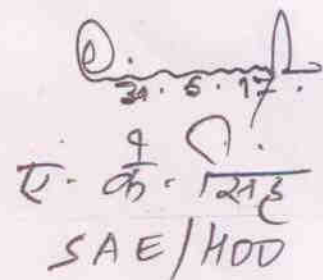 31.5.17.
ए. के. सिंह
SAE/HOD